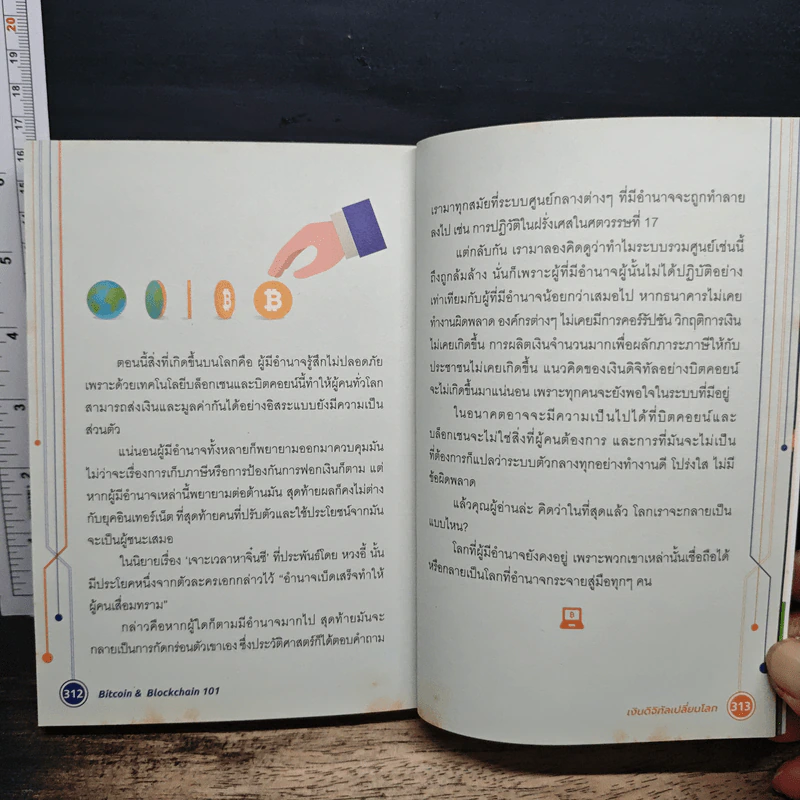 ตอนนี้สิ่งที่เกิดขึ้นบนโลกคือ ผู้มีอำนาจรู้สึกไม่ปลอดภัย
เพราะด้วยเทคโนโลยีบล็อกเชนและบิตคอยน์นี้ทำให้ผู้คนทั่วโลก
สามารถส่งเงินและมูลค่ากันได้อย่างอิสระแบบยังมีความเป็น
ส่วนตัว
แน่นอนผู้มีอำนาจทั้งหลายก็พยายามออกมาควบคุมมัน
ไม่ว่าจะเรื่องการเก็บภาษีหรือการป้องกันการฟอกเงินก็ตาม แต่
หากผู้มีอำนาจเหล่านี้พยายามต่อต้านมัน สุดท้ายผลก็คงไม่ต่าง
กับยุคอินเทอร์เน็ต ที่สุดท้ายคนที่ปรับตัวและใช้ประโยชน์จากมัน
จะเป็นผู้ชนะเสมอ
ในนิยายเรื่อง ‘เจาะเวลาหาจิ๋นซี’ ที่ประพันธ์โดย หวงอี้ นั้น
มีประโยคหนึ่งจากตัวละครเอกกล่าวไว้ “อำนาจเบ็ดเสร็จทำให้
ผู้คนเสื่อมทราม”
กล่าวคือหากผู้ใดก็ตามมีอำนาจมากไป สุดท้ายมันจะ
กลายเป็นการกัดกร่อนตัวเขาเอง ซึ่งประวัติศาสตร์ก็ได้ตอบคำถาม
312 Bitcoin & Blockchain 101
เรามาทุกสมัยที่ระบบศูนย์กลางต่างๆ ที่มีอำนาจจะถูกทำลาย
ลงไป เช่น การปฏิวัติในฝรั่งเศสในศตวรรษที่ 17
แต่กลับกัน เรามาลองคิดดูว่าทำไมระบบรวมศูนย์เช่นนี้
ถึงถูกล้มล้าง นั่นก็เพราะผู้ที่มีอำนาจผู้นั้นไม่ได้ปฏิบัติอย่าง
เท่าเทียมกับผู้ที่มีอำนาจน้อยกว่าเสมอไป หากธนาคารไม่เคย
ทำงานผิดพลาด องค์กรต่างๆ ไม่เคยมีการคอร์รัปชัน วิกฤติการเงิน
ไม่เคยเกิดขึ้น การผลิตเงินจำนวนมากเพื่อผลักภาระภาษีให้กับ
ประชาชนไม่เคยเกิดขึ้น แนวคิดของเงินดิจิทัลอย่างบิตคอยน์
จะไม่เกิดขึ้นมาแน่นอน เพราะทุกคนจะยังพอใจในระบบที่มีอยู่
ในอนาคตอาจจะมีความเป็นไปได้ที่บิตคอยน์และ
บล็อกเชนจะไม่ใช่สิ่งที่ผู้คนต้องการ และการที่มันจะไม่เป็น
ที่ต้องการก็แปลว่าระบบตัวกลางทุกอย่างทำงานดี โปร่งใส ไม่มี
ข้อผิดพลาด
แล้วคุณผู้อ่านล่ะ คิดว่าในที่สุดแล้ว โลกเราจะกลายเป็น
แบบไหน?
โลกที่ผู้มีอำนาจยังคงอยู่ เพราะพวกเขาเหล่านั้นเชื่อถือได้
หรือกลายเป็นโลกที่อำนาจกระจายสู่มือทุกๆ คน
เงินดิจิทัลเปลี่ยนโลก 313
20
19
18
17
16
15
14
13
12
11
10
9
8
5
4
3
2